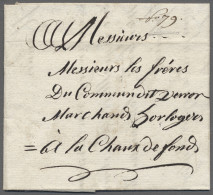 Messieurs
Messieurs les fréres
Du Commun dit Verron
Marchands Zorlogers
=à la Chaux de fond